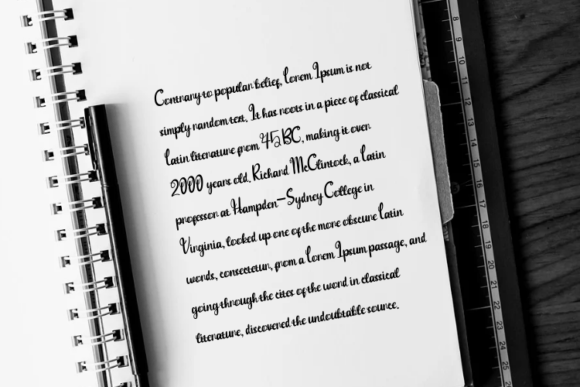 Contrary to popular belief, Lorem Ipsum is not
simply random text. It has roots in a piece of classical
Latin literature from 45 BC, making it over
2000 years old. Richard McClintock, a Latin
professor at Hampden-Sydney College in
Virginia, looked up one of the more obscure Latin
words, consectetur, from a Lorem Ipsum passage, and
going through the cites of the word in classical
literature, discovered the undoubtable source.